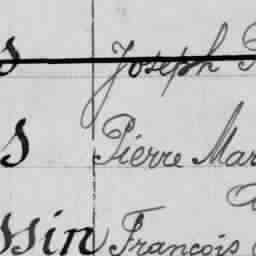 s Joseph
s Pierre Mar
ssin François